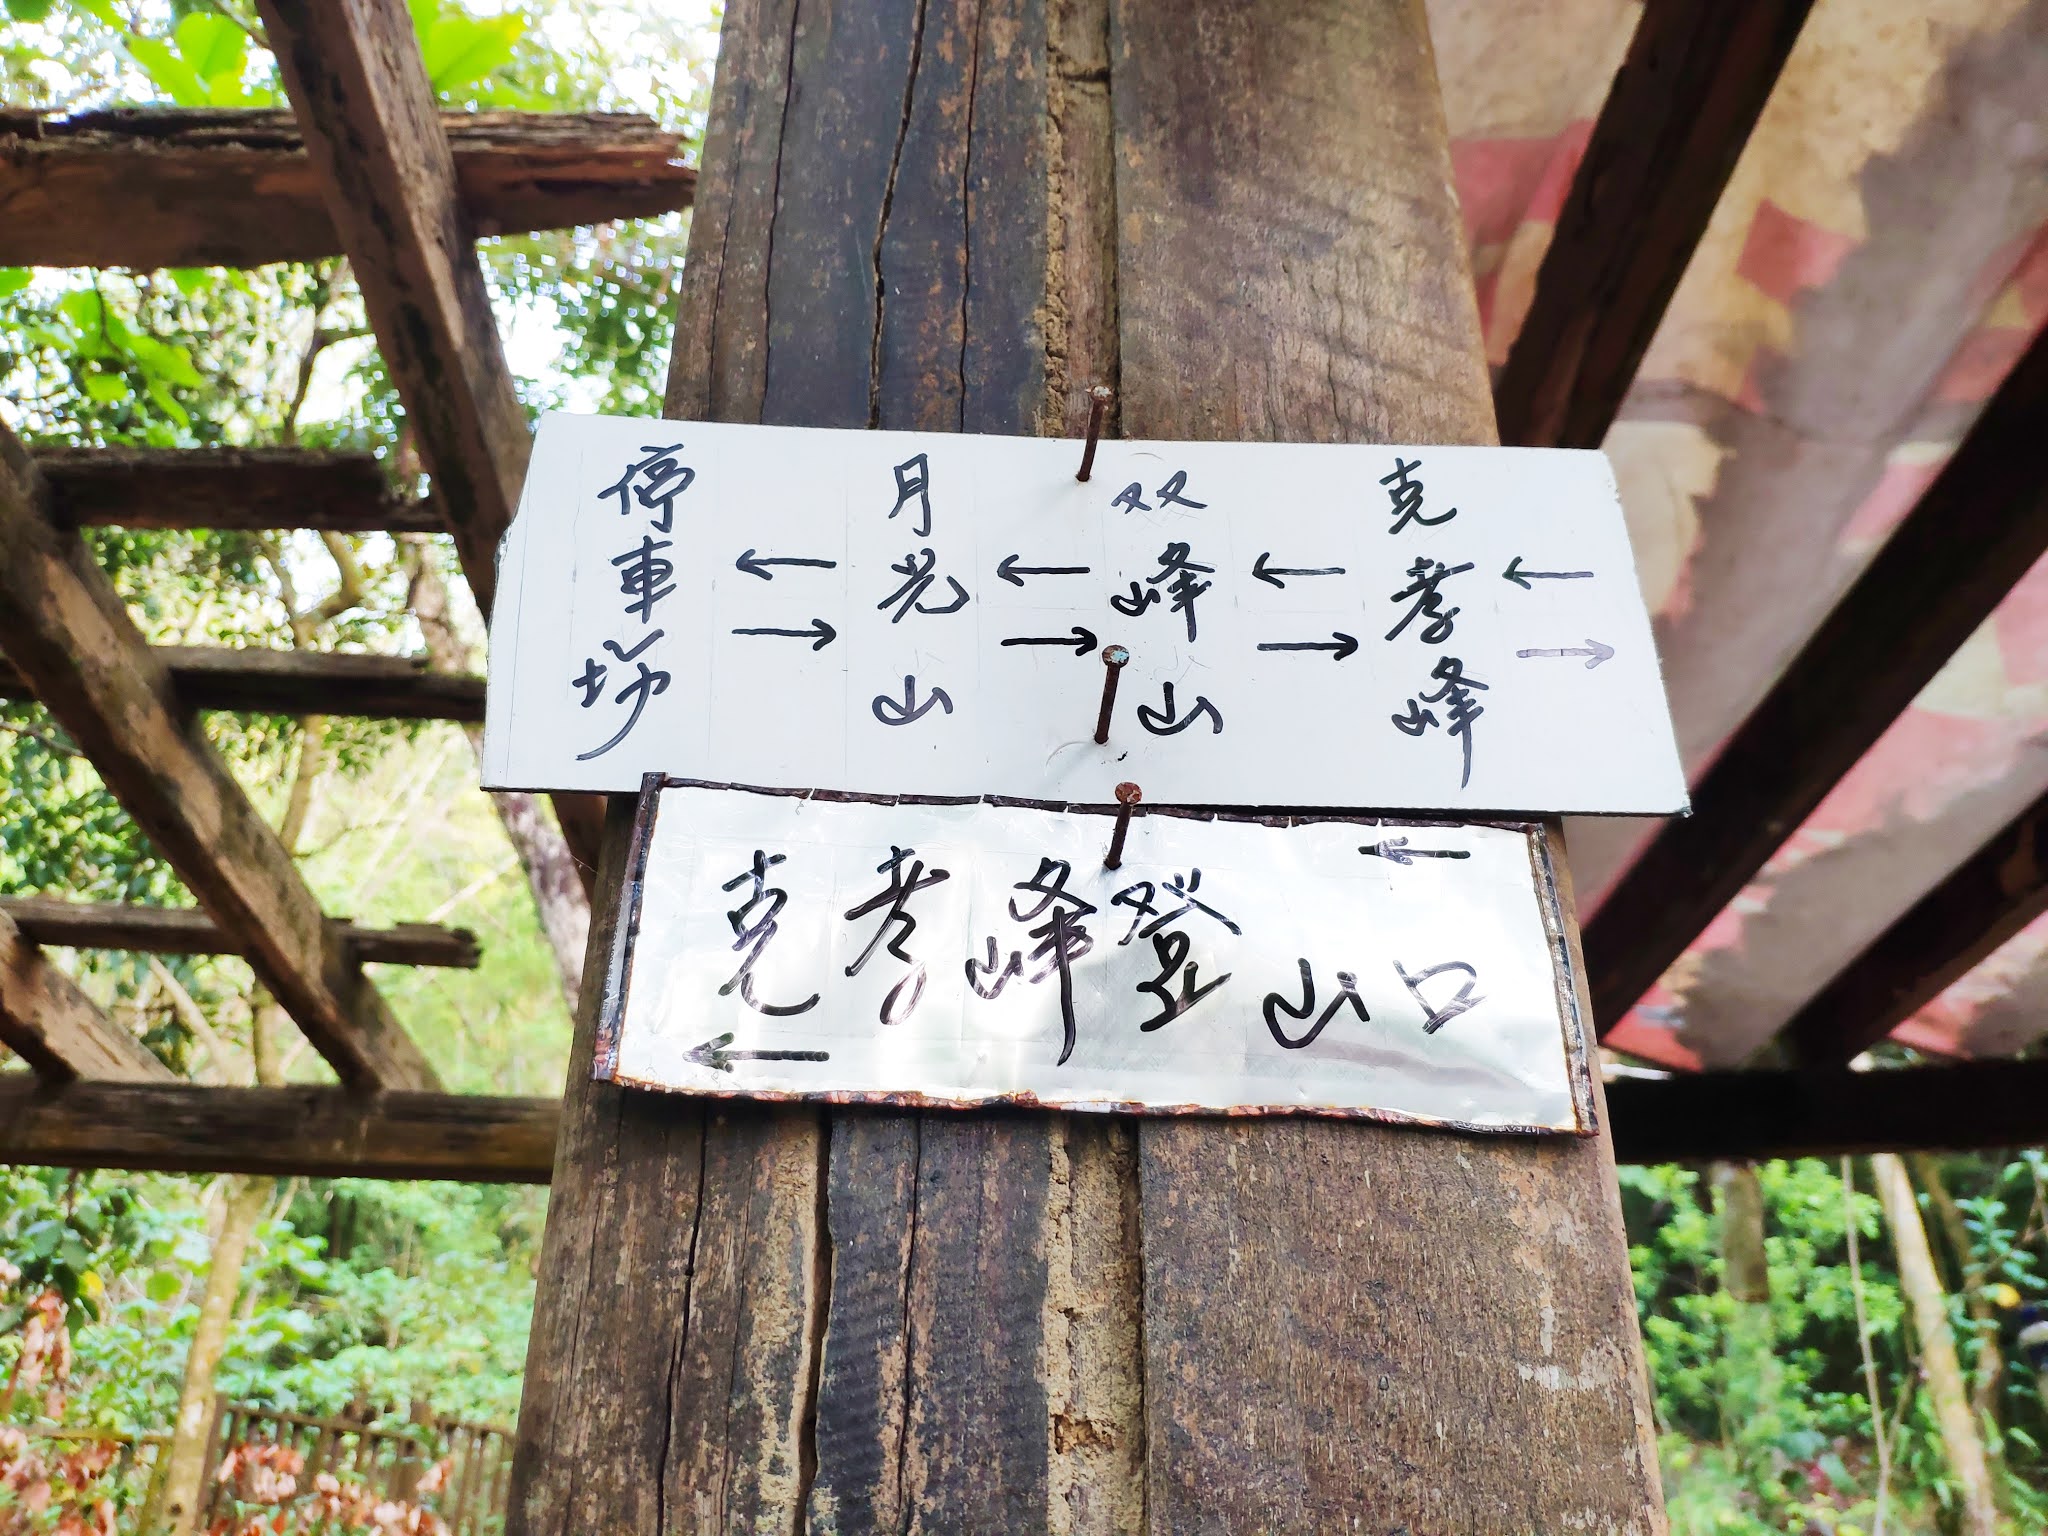 停車場
月光山
双峰山
克孝峰
克孝峰登山口